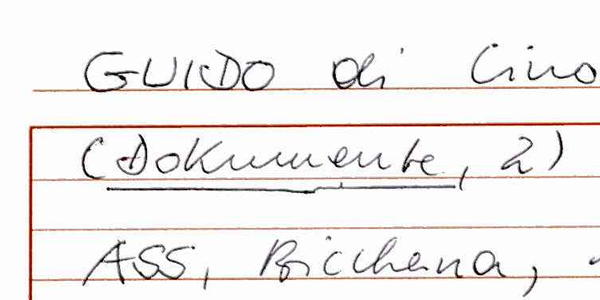 GUIDO di Cino
(Dokumente, 2)
ASS, Bicchena,